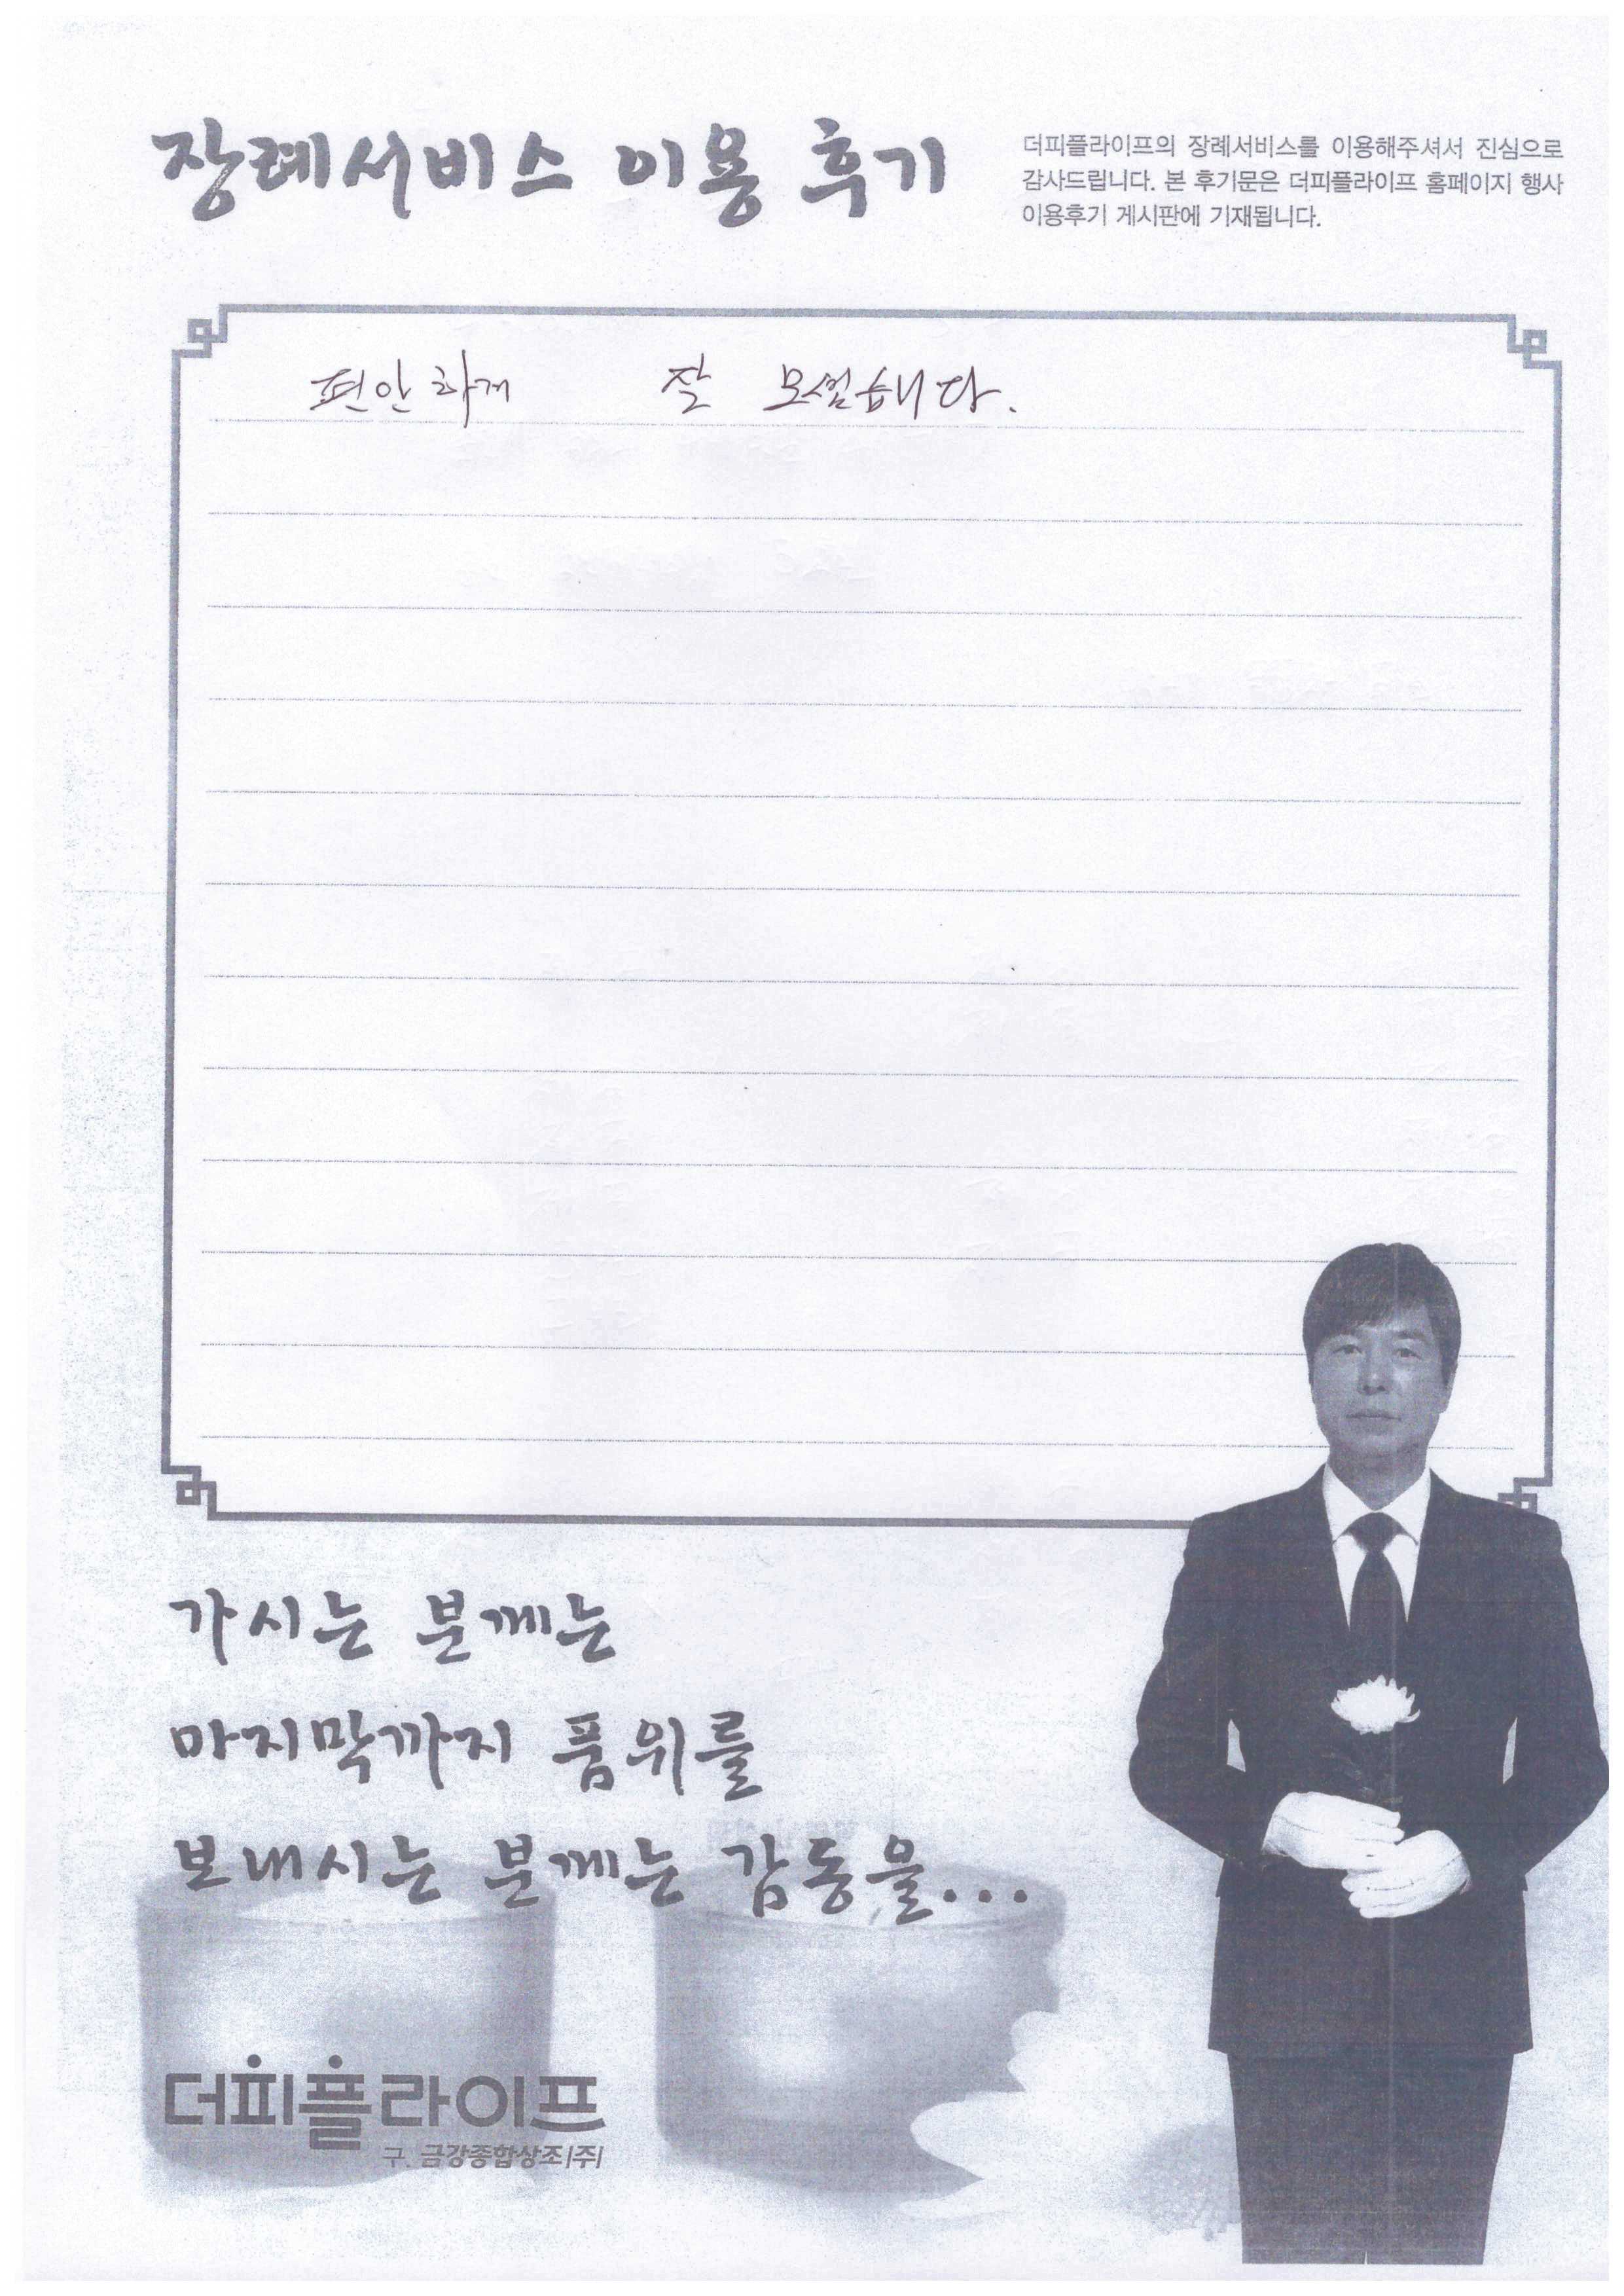 장례서비스 이용 후기
더피플라이프의 장례서비스를 이용해주셔서 진심으로
감사드립니다. 본 후기문은 더피플라이프 홈페이지 행사
이용후기 게시판에 기재됩니다.
편안하게 잘 모셨습니다.
가시는 분께는
마지막까지 품위를
보내시는 분께는 감동을...
더피플라이프
구. 금강종합상조|주|